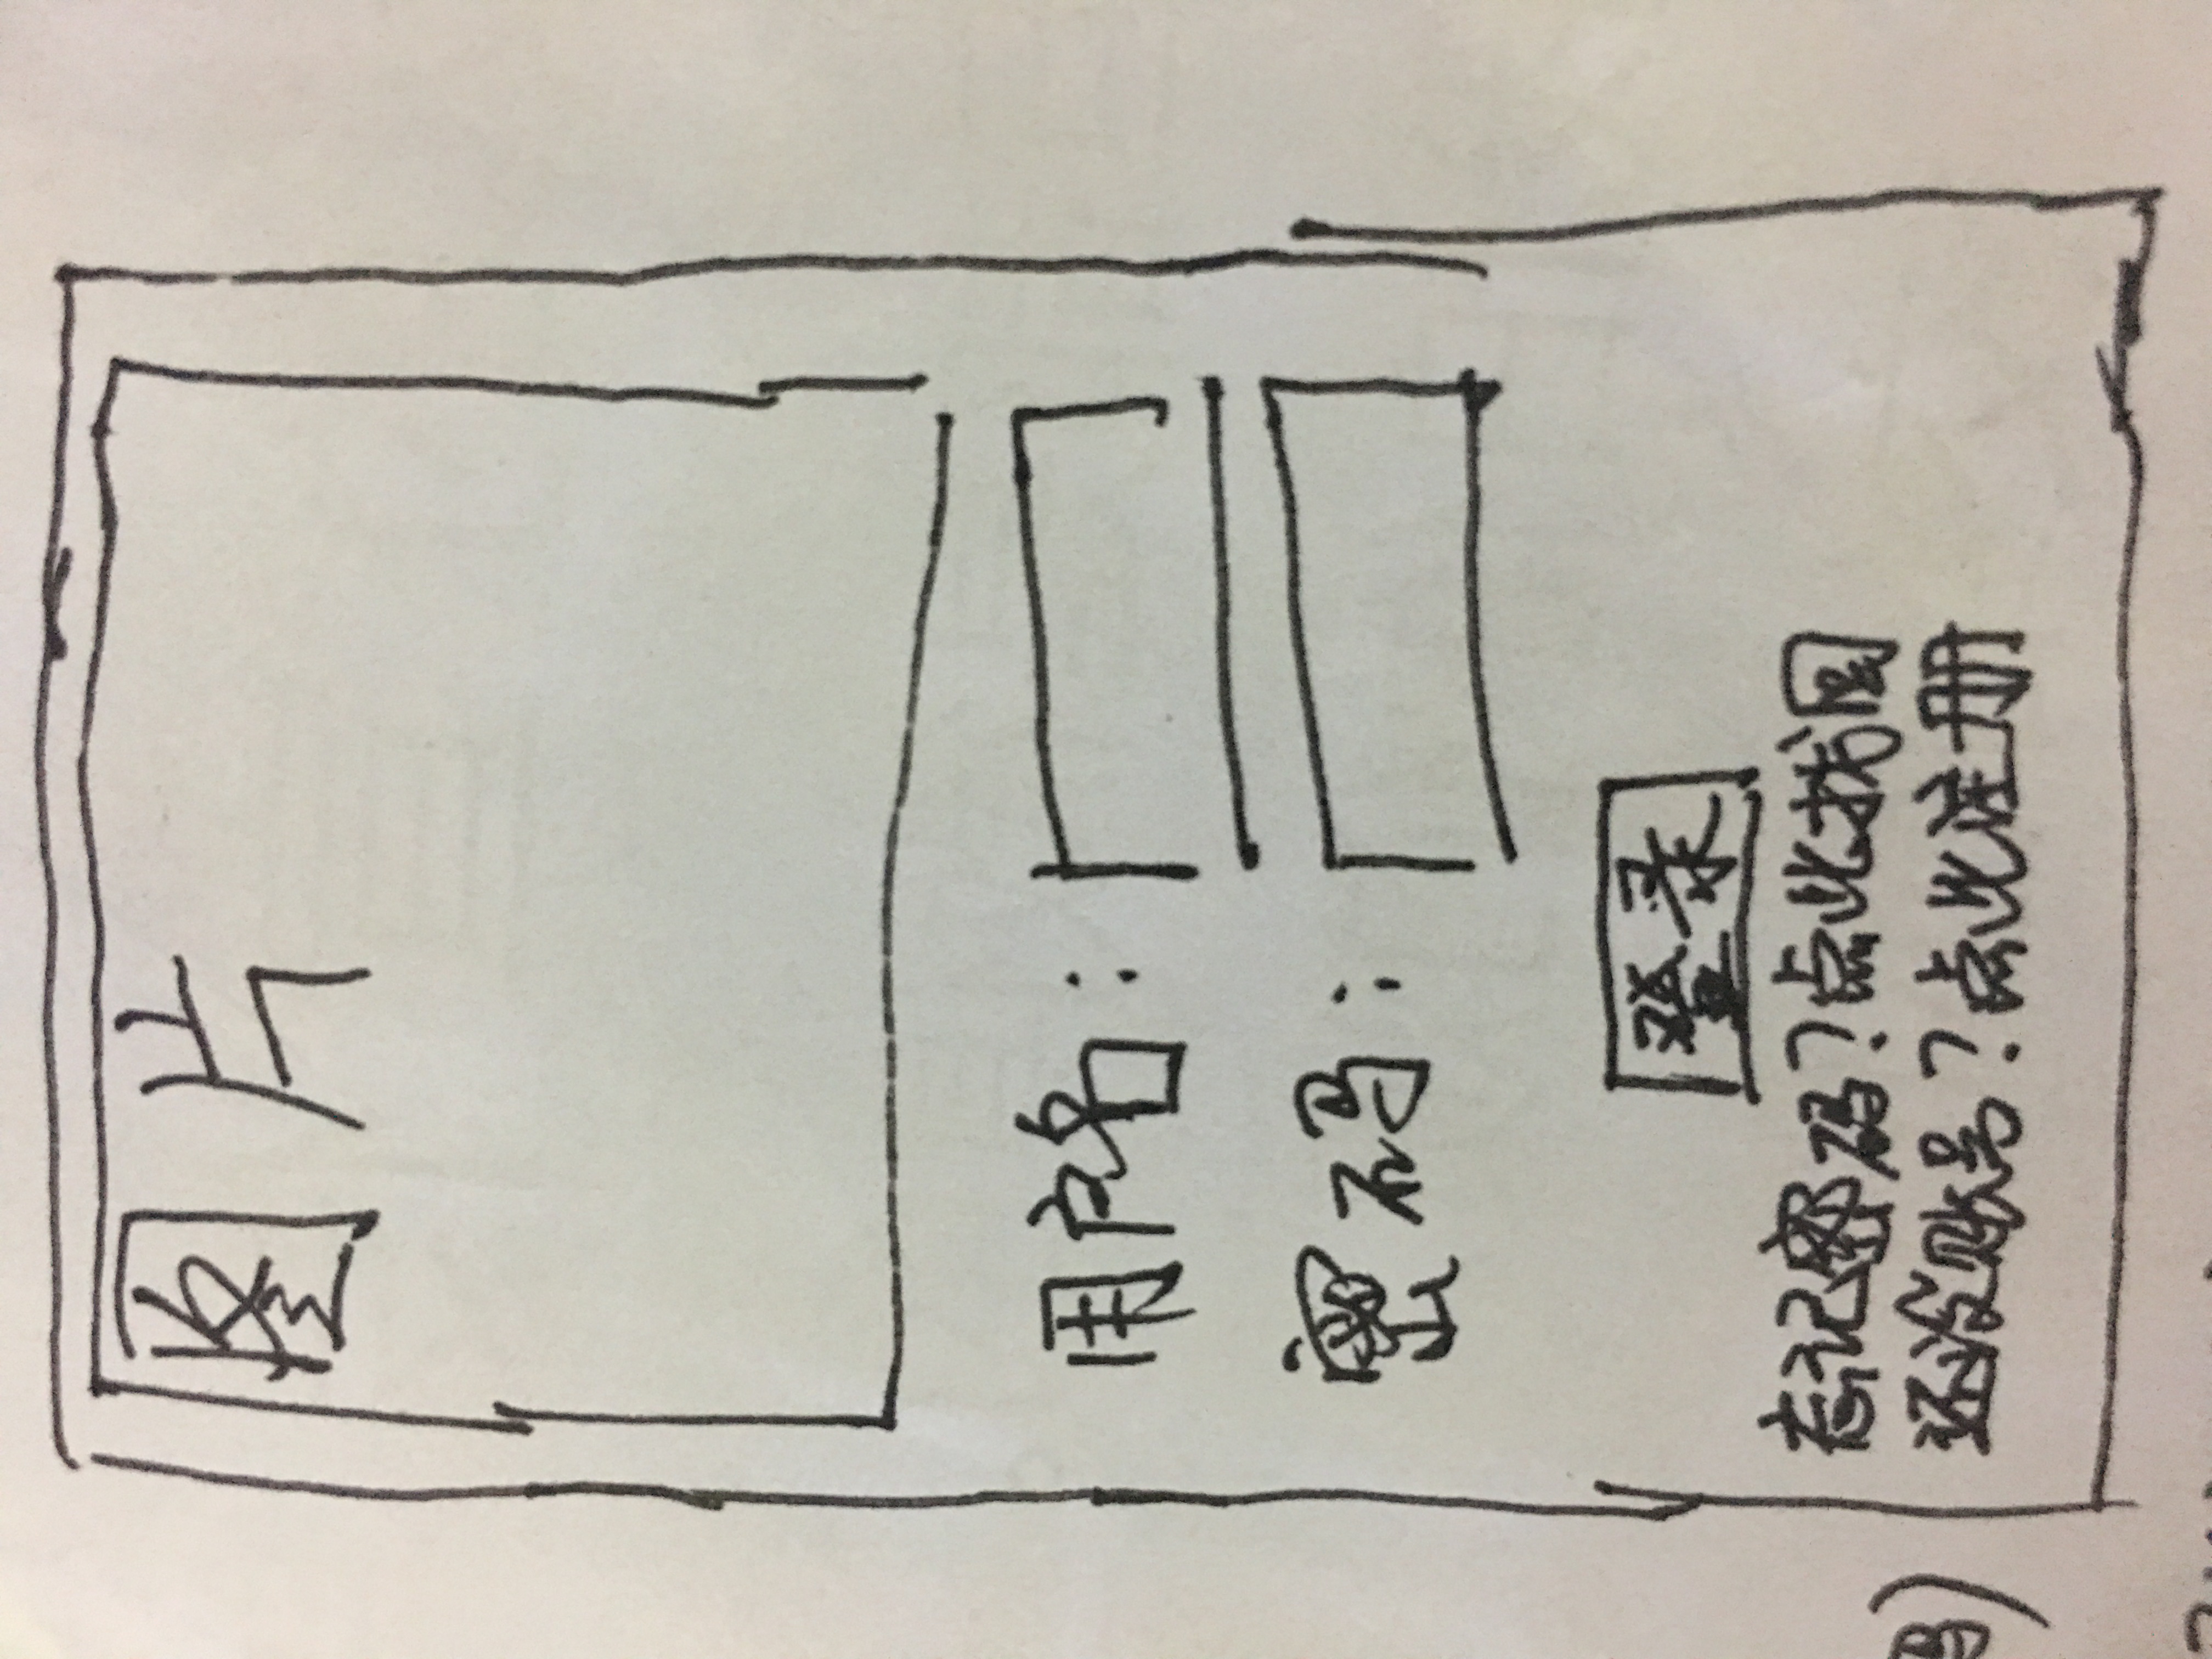 图片
用户名：
密码：
登录
忘记密码？点此找回
还没账号？点此注册
码）